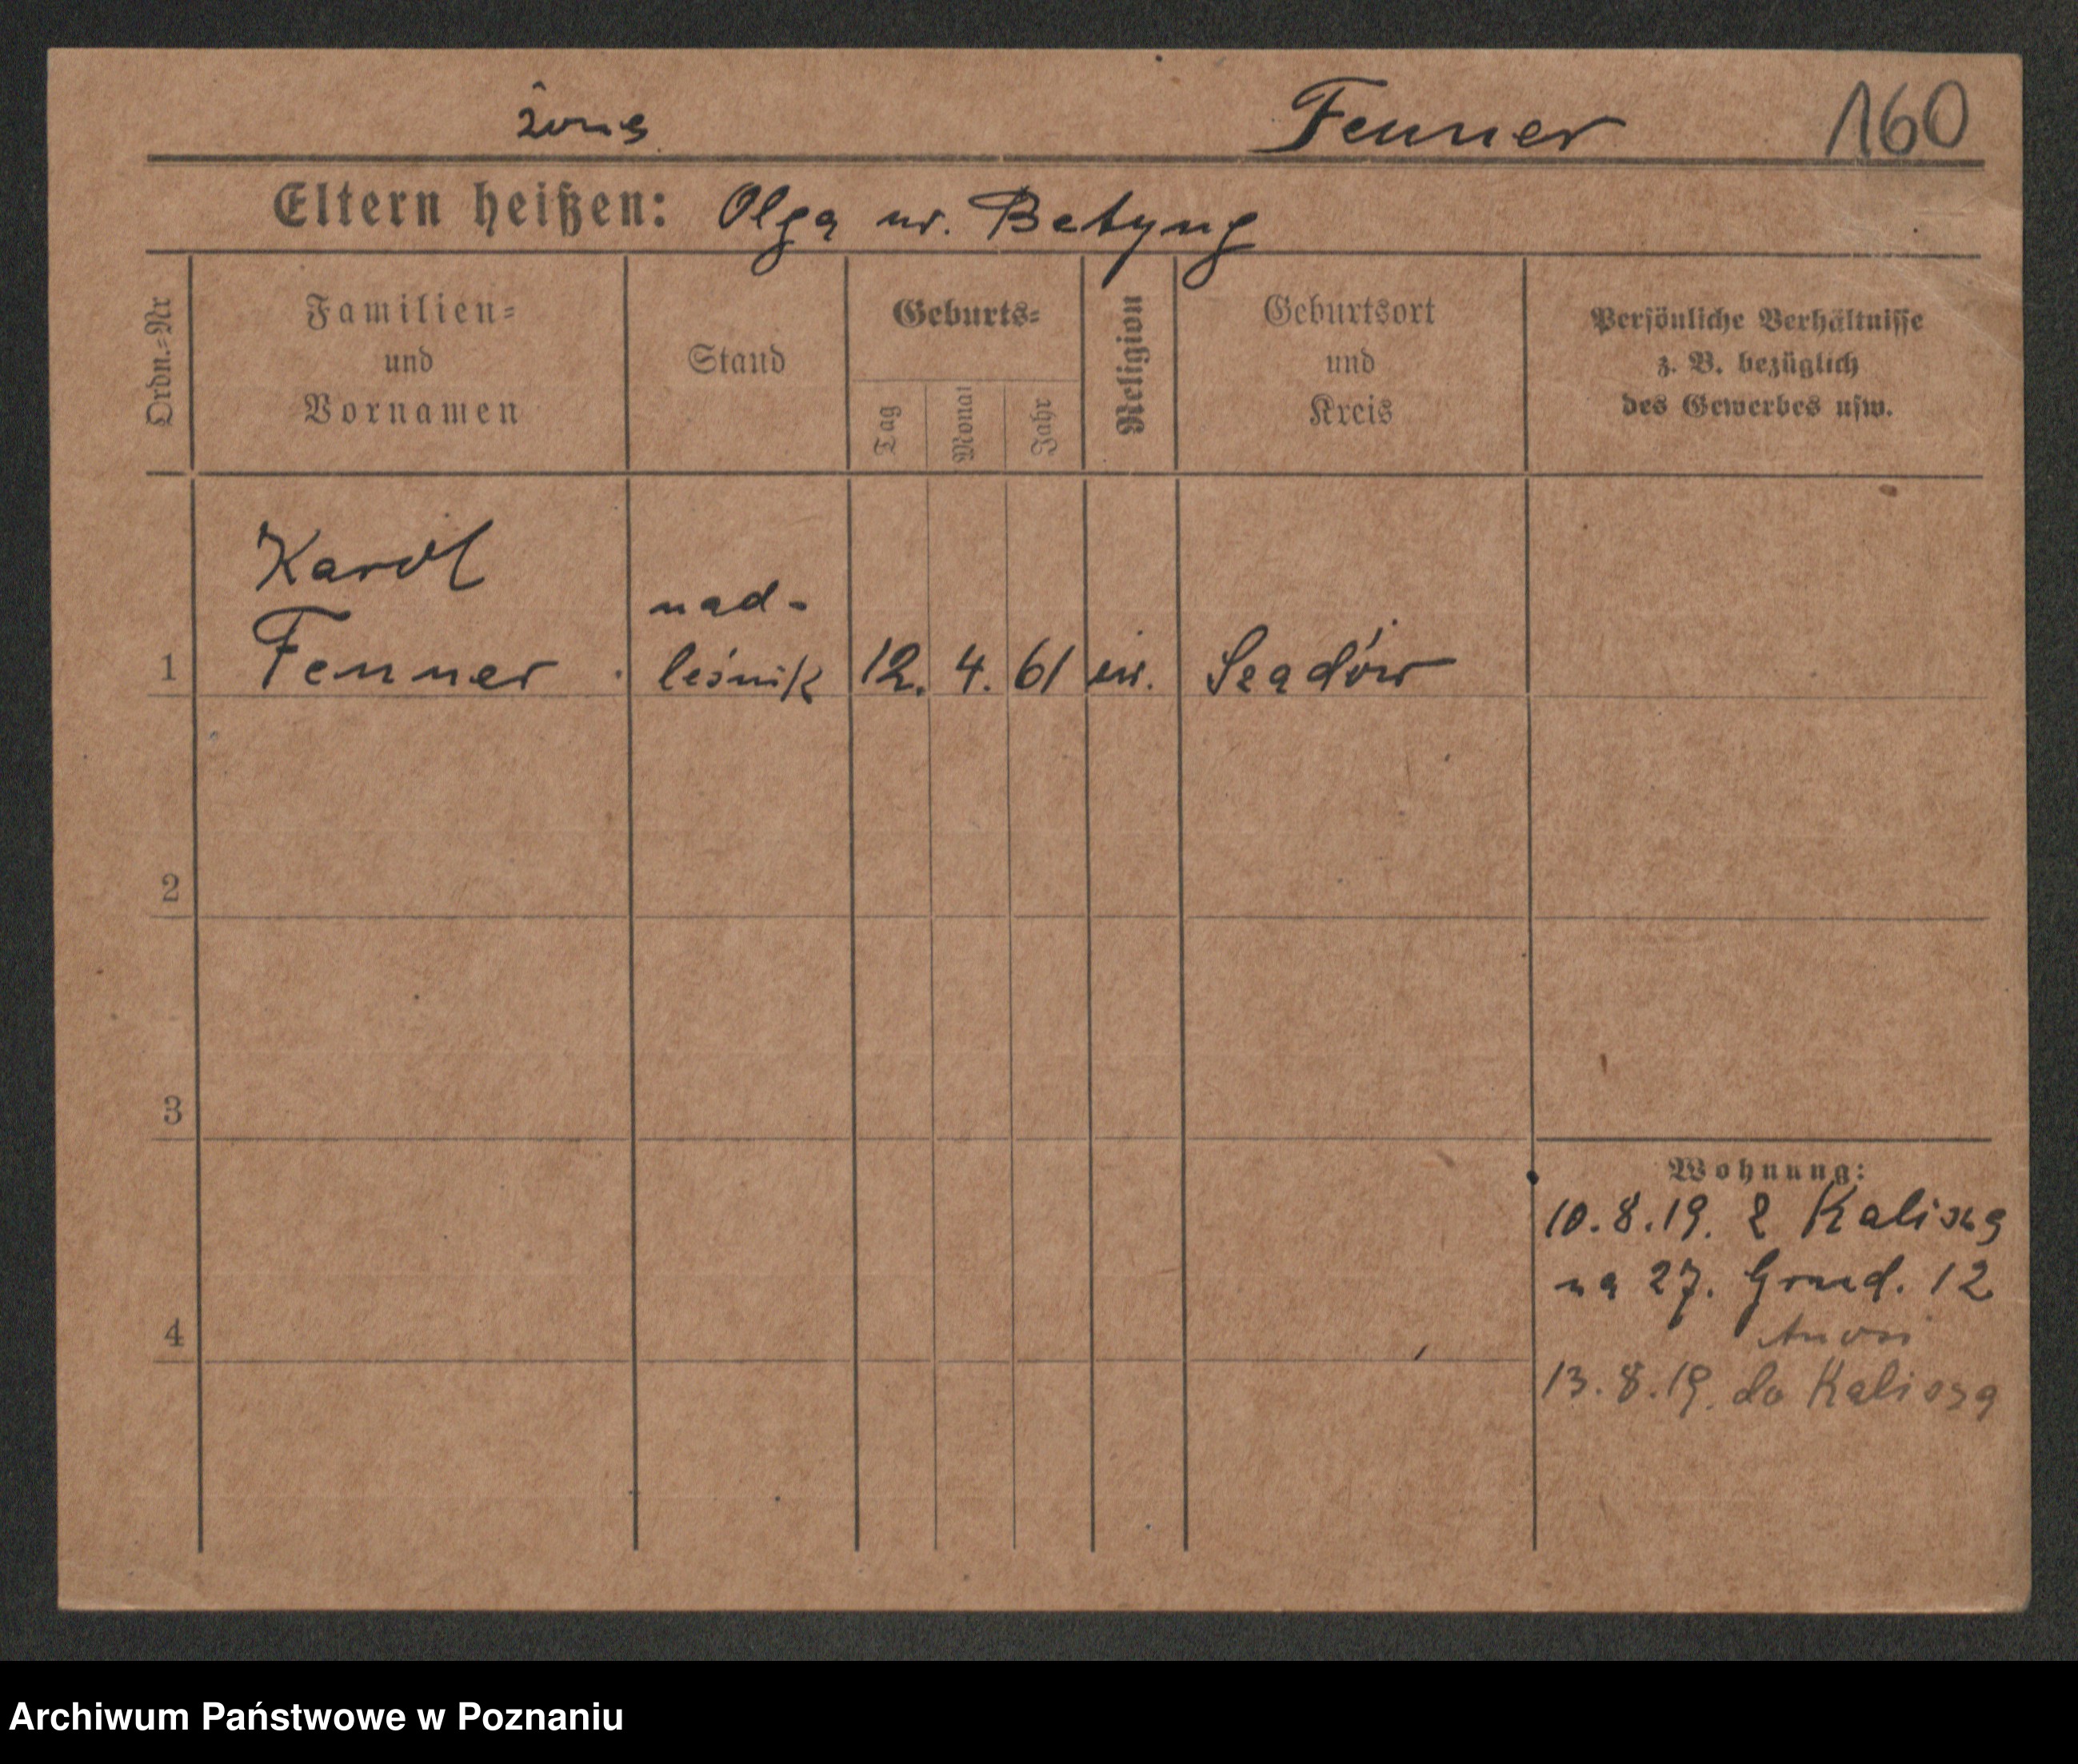 żona Fenner 160
Eltern heißen: Olga ur. Betyng
Ordn.-Nr
Familien-
und
Vornamen
Stand
Geburts-
Tag
Monat
Jahr
Religion
Geburtsort
und
Kreis
Persönliche Verhältnisse
z. B. bezüglich
des Gewerbes usw.
Karol
nad-
1 Fenner leśnik 12. 4. 61 ew. Szadów
2
3
4
Wohnung:
10.8.19. z Kalisza
na 27. Grud. 12
13.8.19. do Kalisza
Archiwum Państwowe w Poznaniu